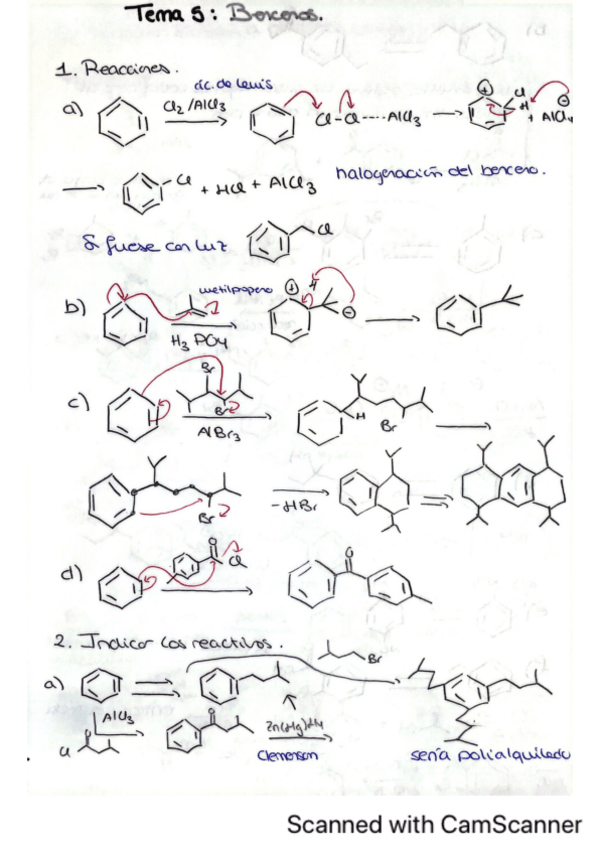 Tema 5: Benceno.
1. Reacciones.
ác. de Lewis
a) Cl2 / AlCl3 Cl-Cl----AlCl3 Cl H + AlCl4
Cl + HCl + AlCl3 halogenación del benceno.
Si fuese con luz Cl
b) metilpropeno H
H3PO4
c) Br Br AlBr3 H Br
Br -HBr
d) O Cl O
2. Indicar los reactivos.
Br
a)
AlCl3 O Zn(Hg)/H+
Cl O Clemenson sería polialquilado
Scanned with CamScanner